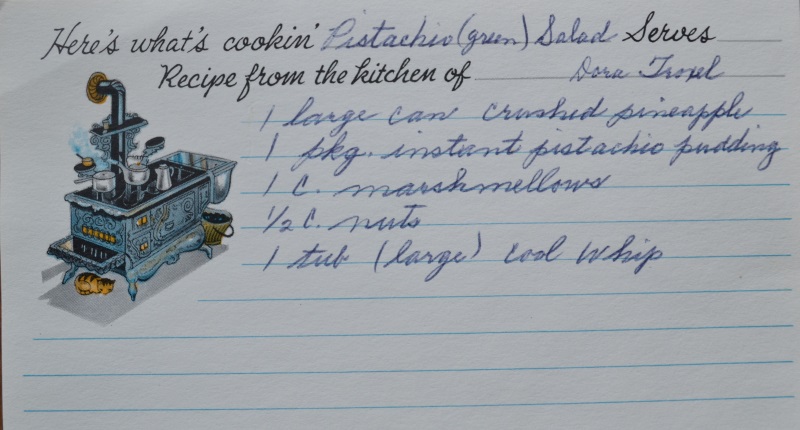 Here's what's cookin' Pistachio (green) Salad Serves
Recipe from the kitchen of Dora Troxel
1 large can crushed pineapple
1 pkg. instant pistachio pudding
1 C. marshmellows
1/2 C. nuts
1 tub (large) cool whip